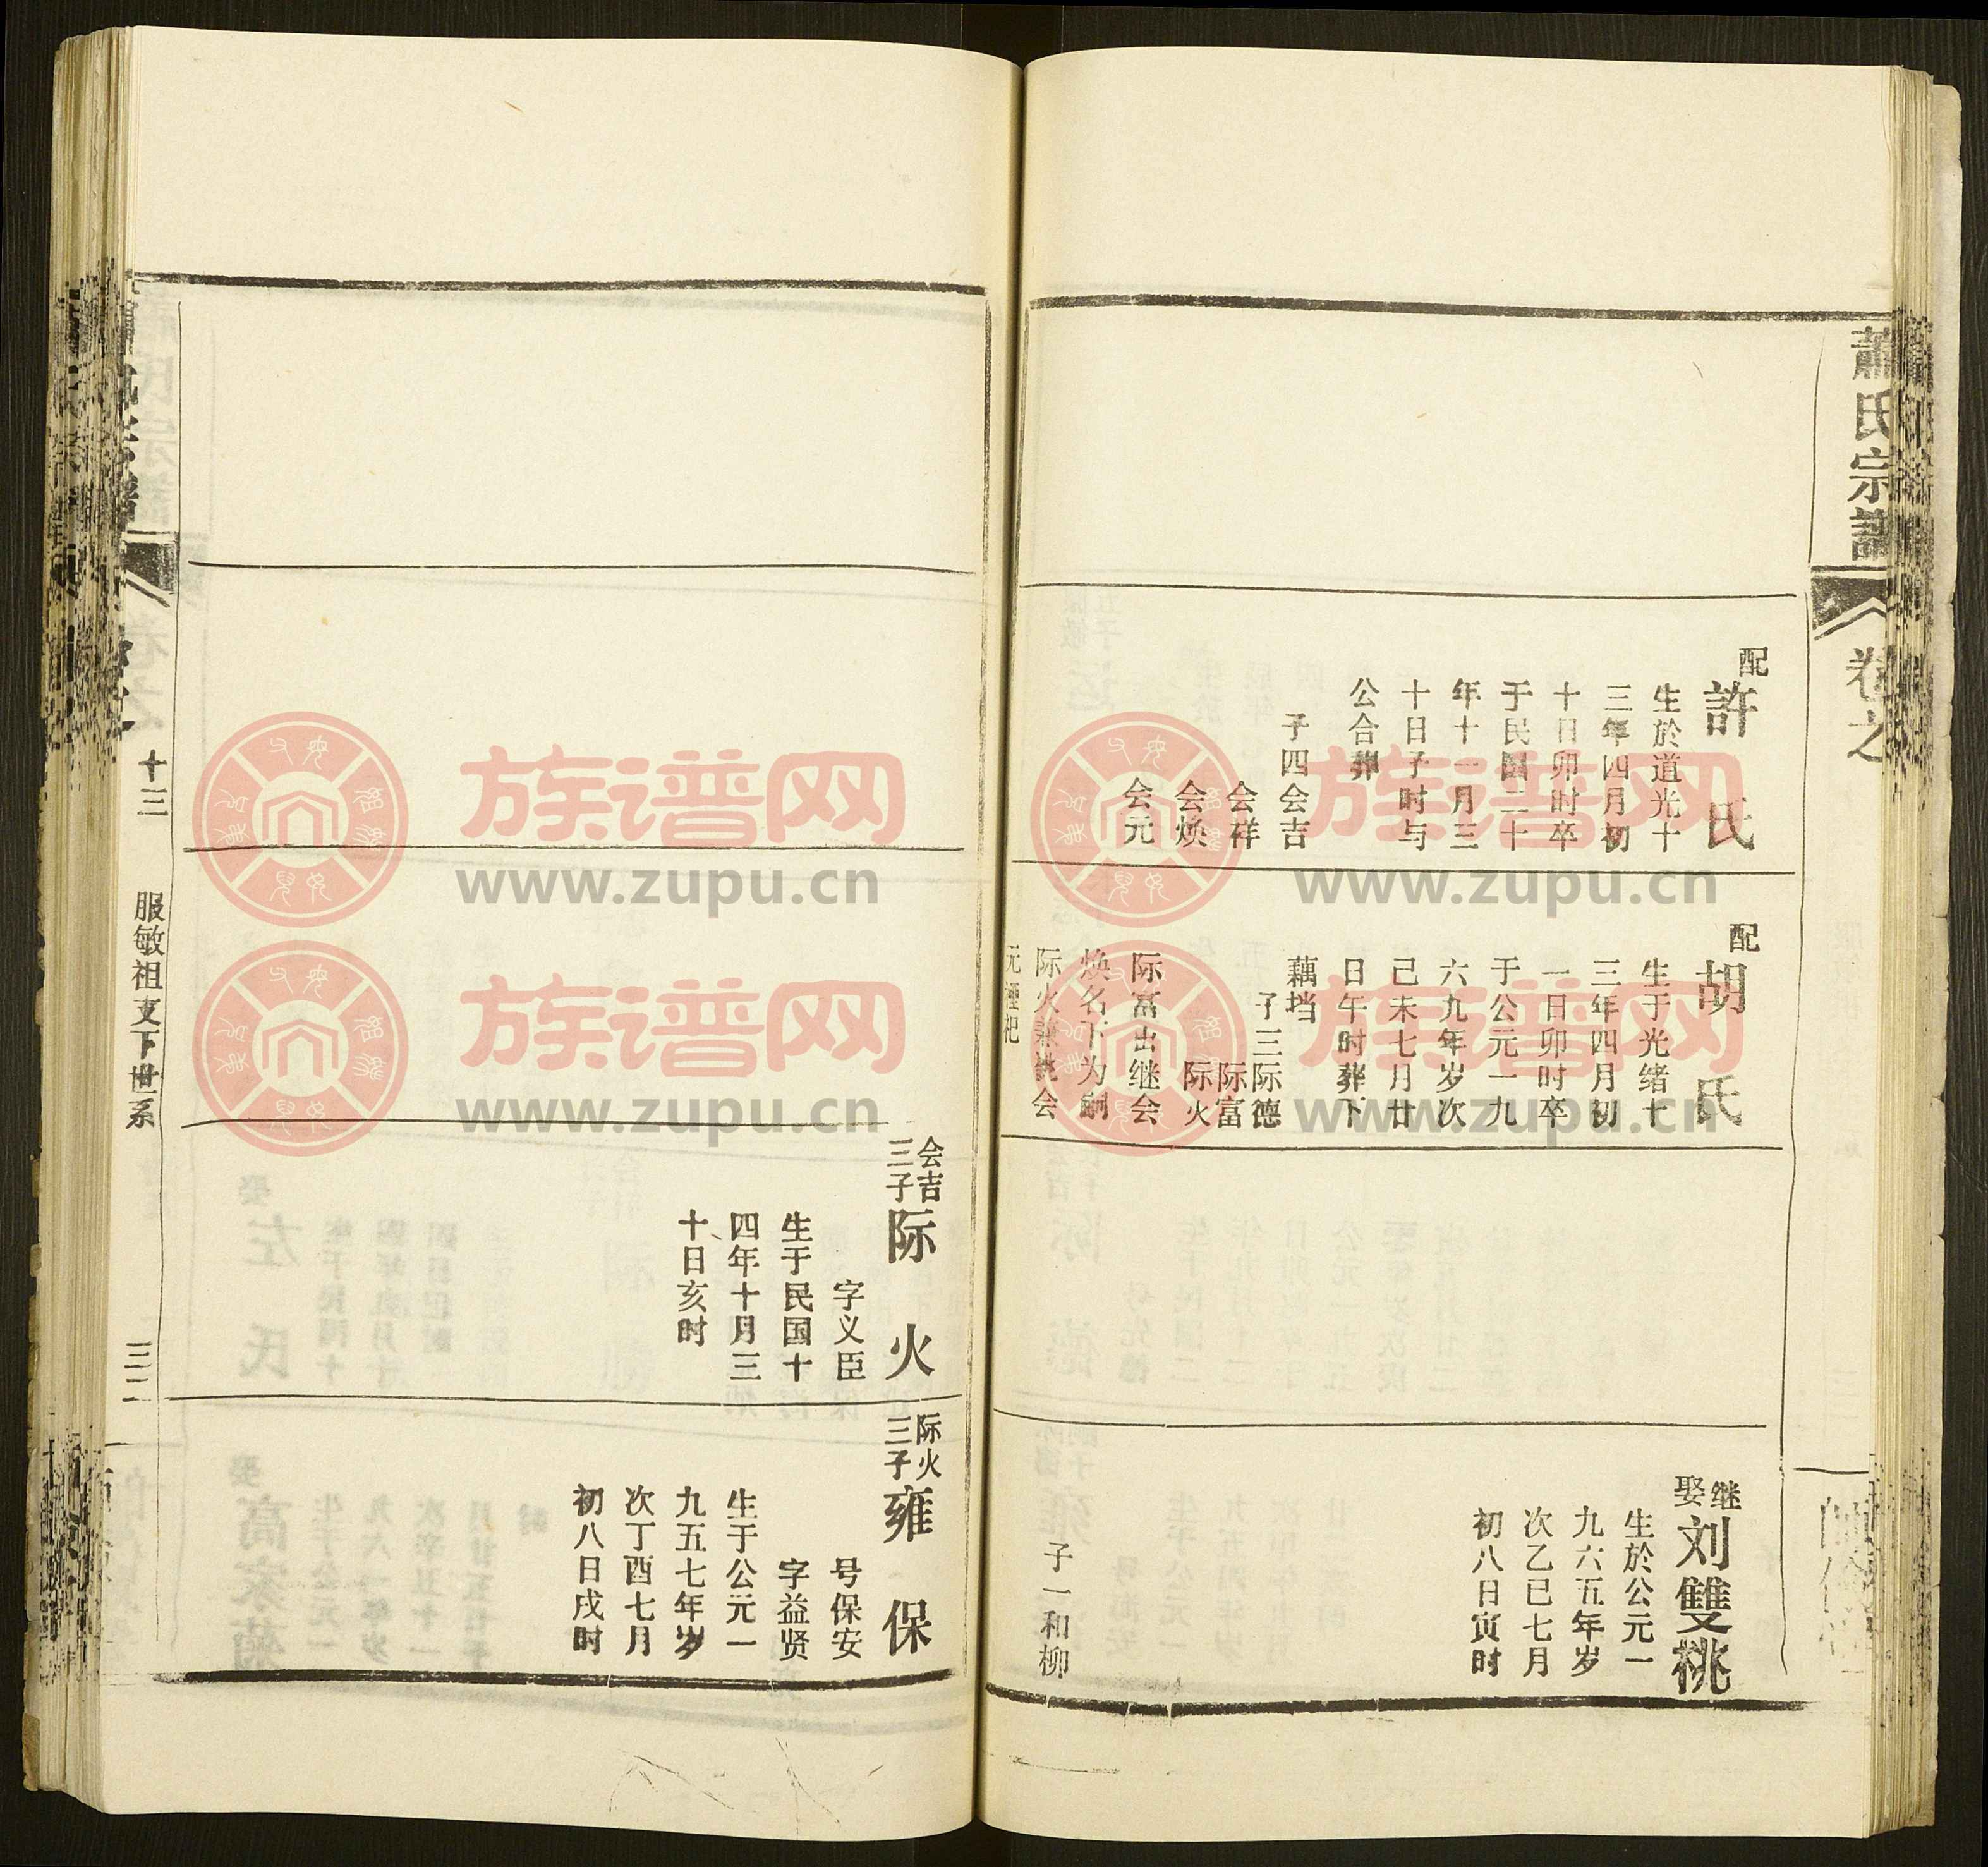 蕭氏宗譜
卷之
配
許氏
生於道光十
三年四月初
十日卯时卒
于民國二十
年十一月三
十日子时与
公合葬
子四会吉
会祥
会焕
会元
配
胡氏
生于光绪十
三年四月初
一日卯时卒
于公元一九
六九年岁次
己未七月廿
日午时葬下
藕垱
子三际德
际富
际火
际富出继会
焕名下为嗣
际火兼祧会
元禋祀
继
娶
刘雙桃
生於公元一
九六五年岁
次乙巳七月
初八日寅时
子一和柳
会吉
三子
际火
字义臣
生于民国十
四年十月三
十日亥时
际火
三子
雍保
号保安
字益贤
生于公元一
九五七年岁
次丁酉七月
初八日戌时
十三
服敏祖支下世系
三二
族谱网
www.zupu.cn
族谱网
www.zupu.cn
族谱网
www.zupu.cn
族谱网
www.zupu.cn